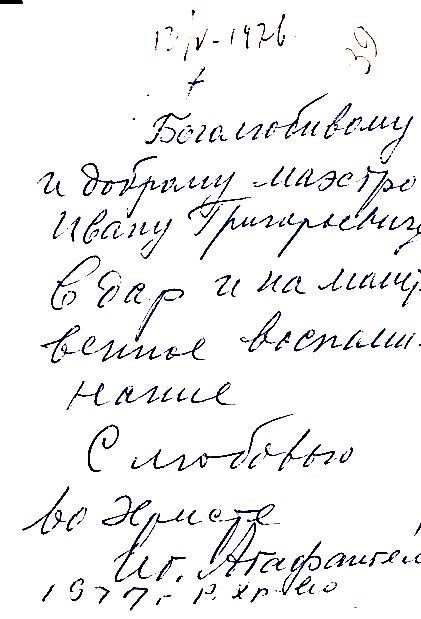 13/IV-1976
39
†
Боголюбивому
и доброму маэстро
Ивану Григорьевичу
В дар и на молит
венное воспоми-
нание
С любовью
во Христе
Иг. Агафангел
1977 г.